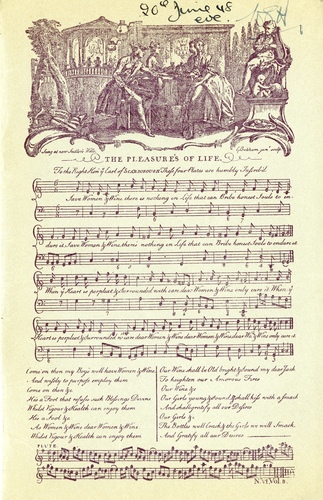 20th June 48
eve.
Sung at new Sadler's Wells
G Bickham jun.r sculp
THE PLEASURE'S OF LIFE.
To the Right Hon. ye Earl of These four Plates are humbly Inscrib'd
Save Women & Wine there is nothing in Life that can Bribe honest Souls to en
dure it Save Women & Wine there is nothing in Life that can Bribe honest Souls to endure it
When ye Heart is perplext & Surrounded with care dear Women & Wine only cure it When ye
Heart is perplext & Surrounded w. care dear Women & Wine dear Women & Wine dear Wo: & Wine only cure it
Come on then my Boys well have Women & Wine
And wisely to purpose employ them
Come on then &c
He's a Foot that refuses such Blessings Divine
Whilst Vigour & Health can enjoy them
He's a Foot &c
As Women & Wine dear Women & Wine
Whilst Vigour & Health can enjoy them
Our Wine shall be Old bright & Sound my dear Jack
To heighten our Amorous Fires
Our Wine &c
Our Girls young & Sound & shall kiss with a smack
And shall gratify all our Desires
Our Girls &c
The Bottles well Crack & the Girls we will Smack
And Gratify all our Desires
FLUTE
Vol. 2.